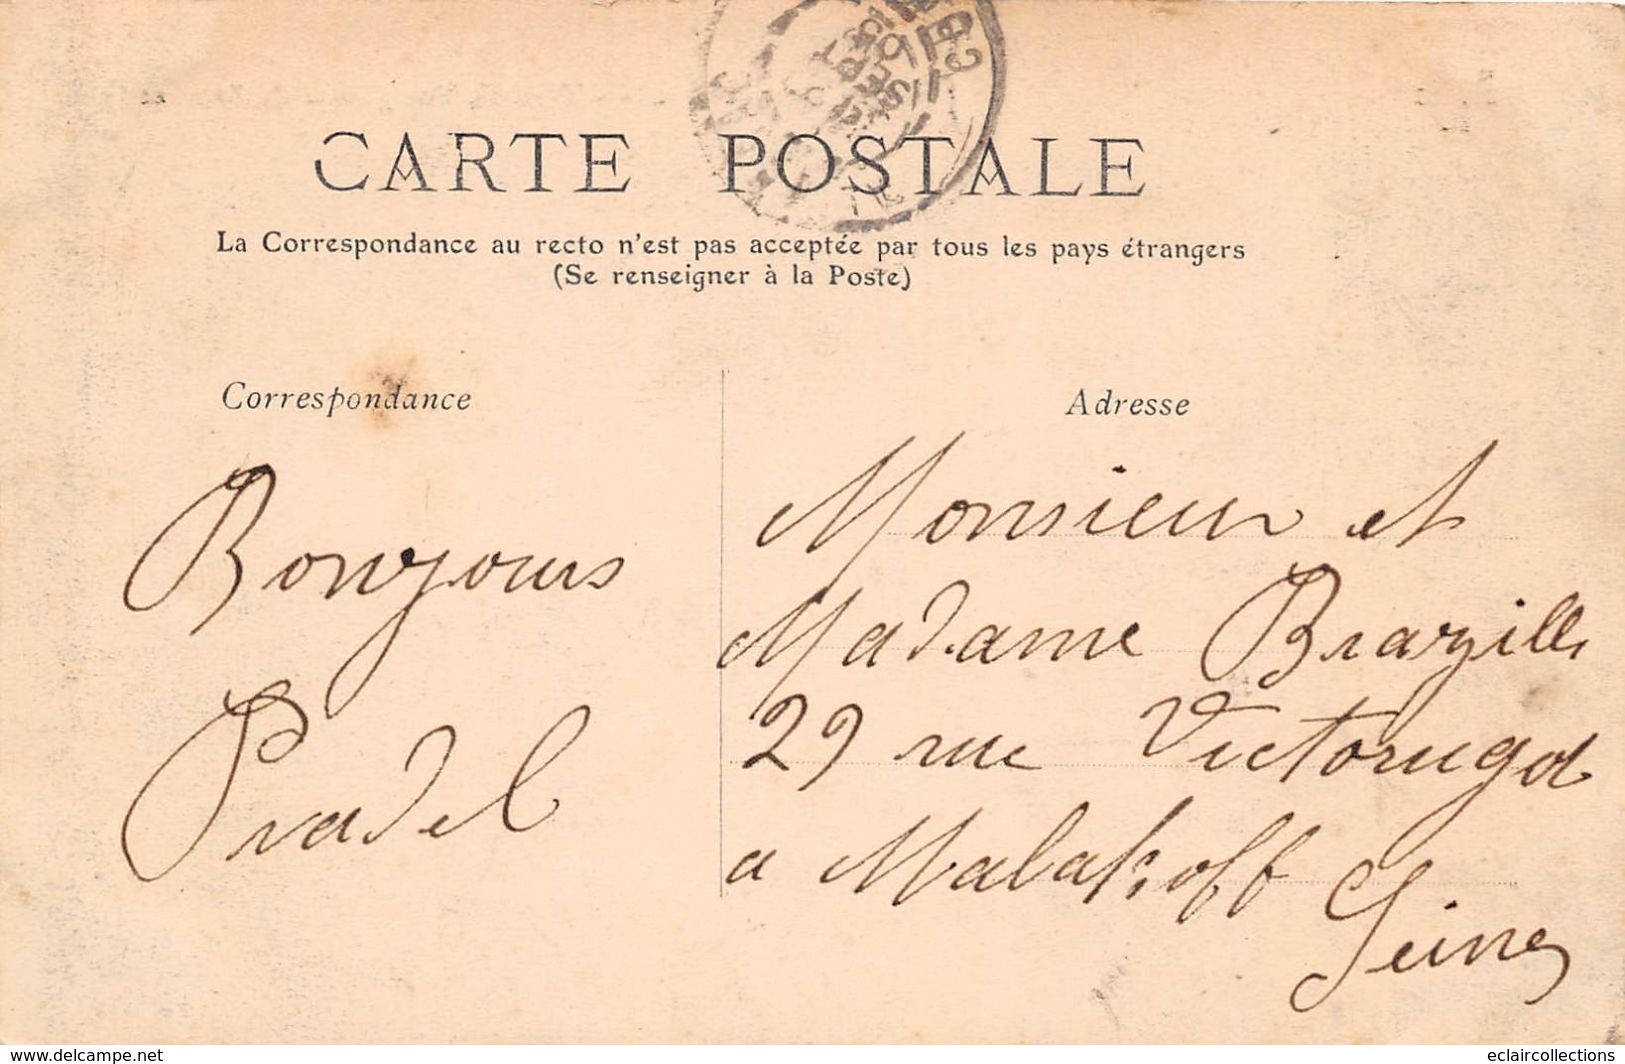 CARTE POSTALE
La Correspondance au recto n'est pas acceptée par tous les pays étrangers
(Se renseigner à la Poste)
Correspondance
Bonjours
Pradel
Adresse
Monsieur et
Madame Brazille
29 rue Victorugo
a Malakoff
Seine
www.delcampe.net
eclaircollections